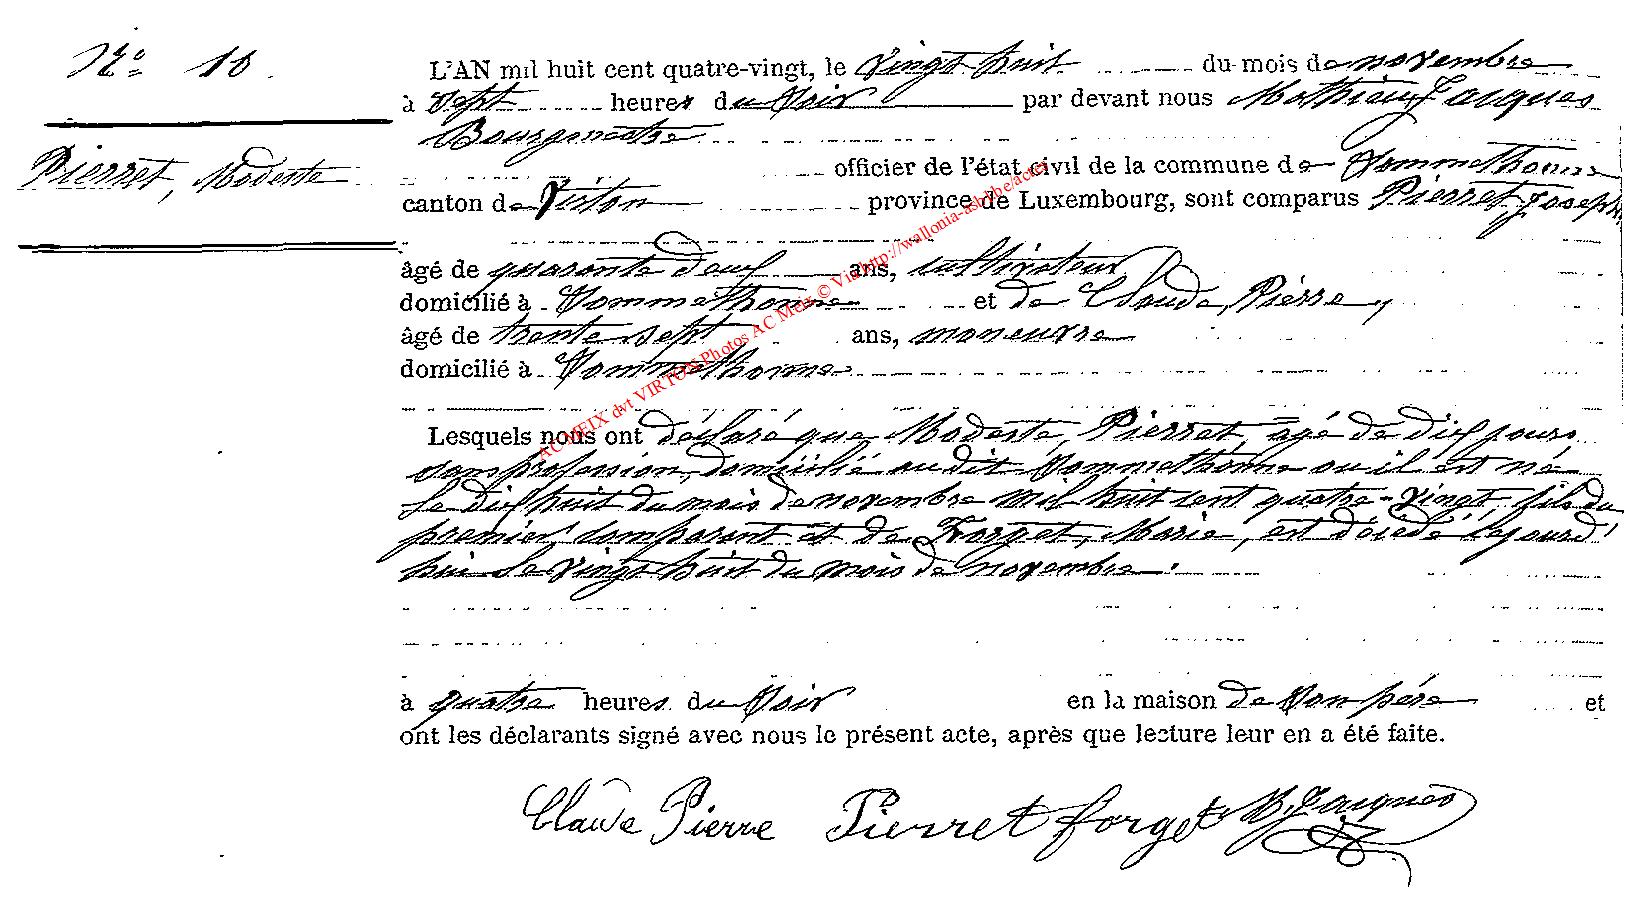 N° 10
Pierret, Modeste
L'AN mil huit cent quatre-vingt, le vingt huit du mois de novembre
à sept heures du soir par devant nous Mathieu Jacques
Bourgmestre
officier de l'état civil de la commune de Sommethonne
canton de Virton province de Luxembourg, sont comparus Pierret Joseph
âgé de quarante deux ans, cultivateur
domicilié à Sommethonne et de Claude, Pierre,
âgé de trente sept ans, manœuvre
domicilié à Sommethonne
Lesquels nous ont déclaré que Modeste, Pierret, agé de dix jours
sans profession, domicilié audit Sommethonne ou il est né
le dix huit du mois de novembre mil huit cent quatre-vingt, fils du
premier comparant et de Forget, Marie, est décédé cejourd'
hui le vingt huit du mois de novembre.
à quatre heures du soir en la maison de son père et
ont les déclarants signé avec nous le présent acte, après que lecture leur en a été faite.
Claude Pierre Pierret forget M Jacques
AC MEIX dvt VIRTON Photos AC Meix © Via http://wallonia-asbl.be/actes